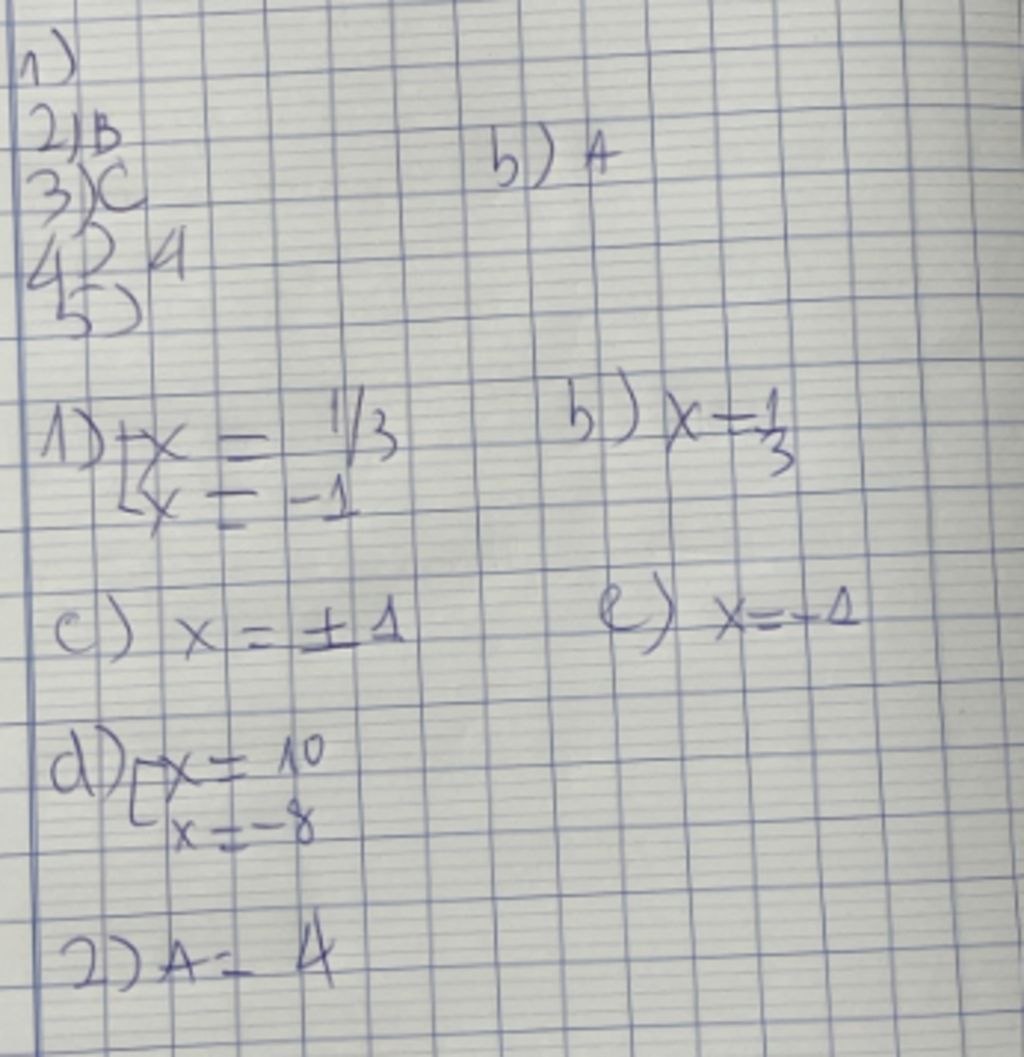 1)
2) B
b) A
3) C
4) A
5)
1) [ x = 1/3
x = -1
b) x = 1/3
c) x = ± 1
e) x = -1
d) [ x = 10
x = -8
2) A = 4